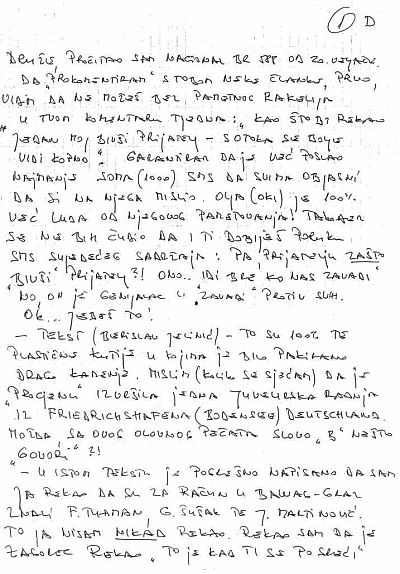 ① D
DRUŽE, PROČITAO SAM NACIONAL BR 588 OD 20. VELJAČE.
DA "PROKOMENTIRAM" S TOBOM NEKE ČLANKE, PRVO,
VIDIM DA NE MOŽEŠ BEZ PAMETNOG RAKELJA
U TVOM KOMENTARU TJEDNA: "KAO ŠTO BI REKAO
JEDAN MOJ BIVŠI PRIJATELJ – S OTOKA SE BOLJE
VIDI KOPNO" GARANTIRAM DA JE VEĆ POSLAO
NAJMANJE SOMA (1000) SMS DA SVIMA OBJASNI
DA SI NA NJEGA MISLIO. OLJA (OKI) JE 100%
VEĆ LUDA OD NJEGOVOG PAMETOVANJA! TAKOĐER
SE NE BIH ČUDIO DA I TI DOBIJEŠ PORUKU
SMS SLJEDEĆEG SADRŽAJA: PA PRIJATELJU ZAŠTO
"BIVŠI" PRIJATELJ?! ONO.. IDI BRE KO NAS ZAVADI"
NO, ON JE GENIJALAC U "ZAVADI" PROTIV SVIH.
OK... JEBEŠ TO!
– TEKST (BERISLAV JELINIĆ) – TO SU 100% TE
PLASTIČNE KUTIJE U KOJIMA JE BILO PAKIRANO
DRAGO KAMENJE. MISLIM (KOLIKO SE SJEĆAM) DA JE
"PROCJENU" IZVRŠILA JEDNA JUVELIRSKA RADNJA
IZ FRIEDRICHSHAFENA (BODENSEE) DEUTSCHLAND.
MOŽDA, SA OVOG OLOVNOG PEČATA SLOVO "B" NEŠTO
"GOVORI"?!
– U ISTOM TEKSTU JE POGREŠNO NAPISANO DA SAM
JA REKAO DA SU ZA RAČUN U BAWAG-GRAZ
ZNALI F. TUĐMAN, G. ŠUŠAK TE J. MARTINOVIĆ.
TO JA NISAM NIKAD REKAO. REKAO SAM DA JE
ZAGOREC REKAO, "TO JE KAD TI SE POSREĆI"